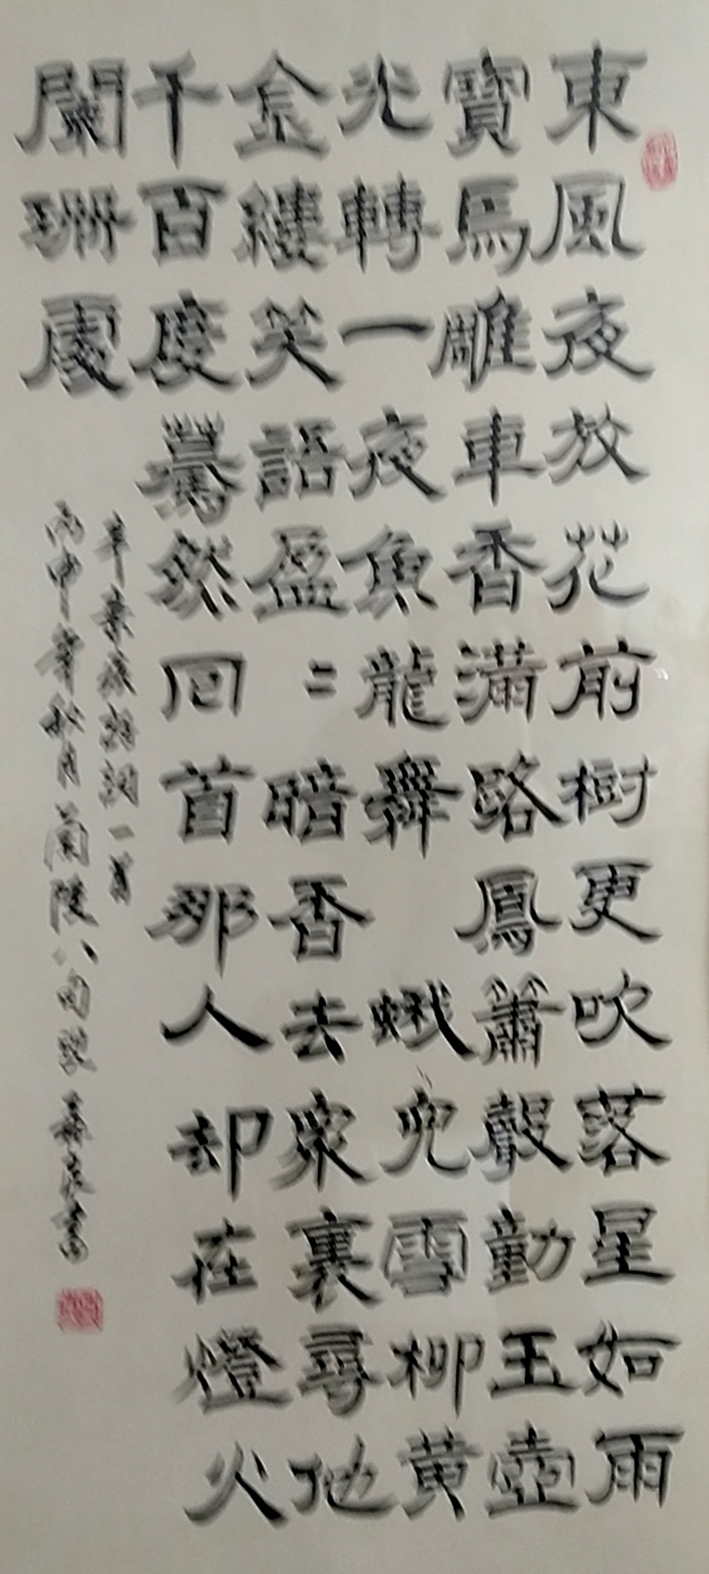 東風夜放花前樹更吹落星如雨
寶馬雕車香滿路鳳簫聲動玉壺
光轉一夜魚龍舞 蛾兒雪柳黄
金縷笑語盈〻暗香去衆裏尋他
千百度驀然回首那人却在燈火
闌珊處
辛棄疾詩詞一首
丙申年秋月蘭陵八旬叟書